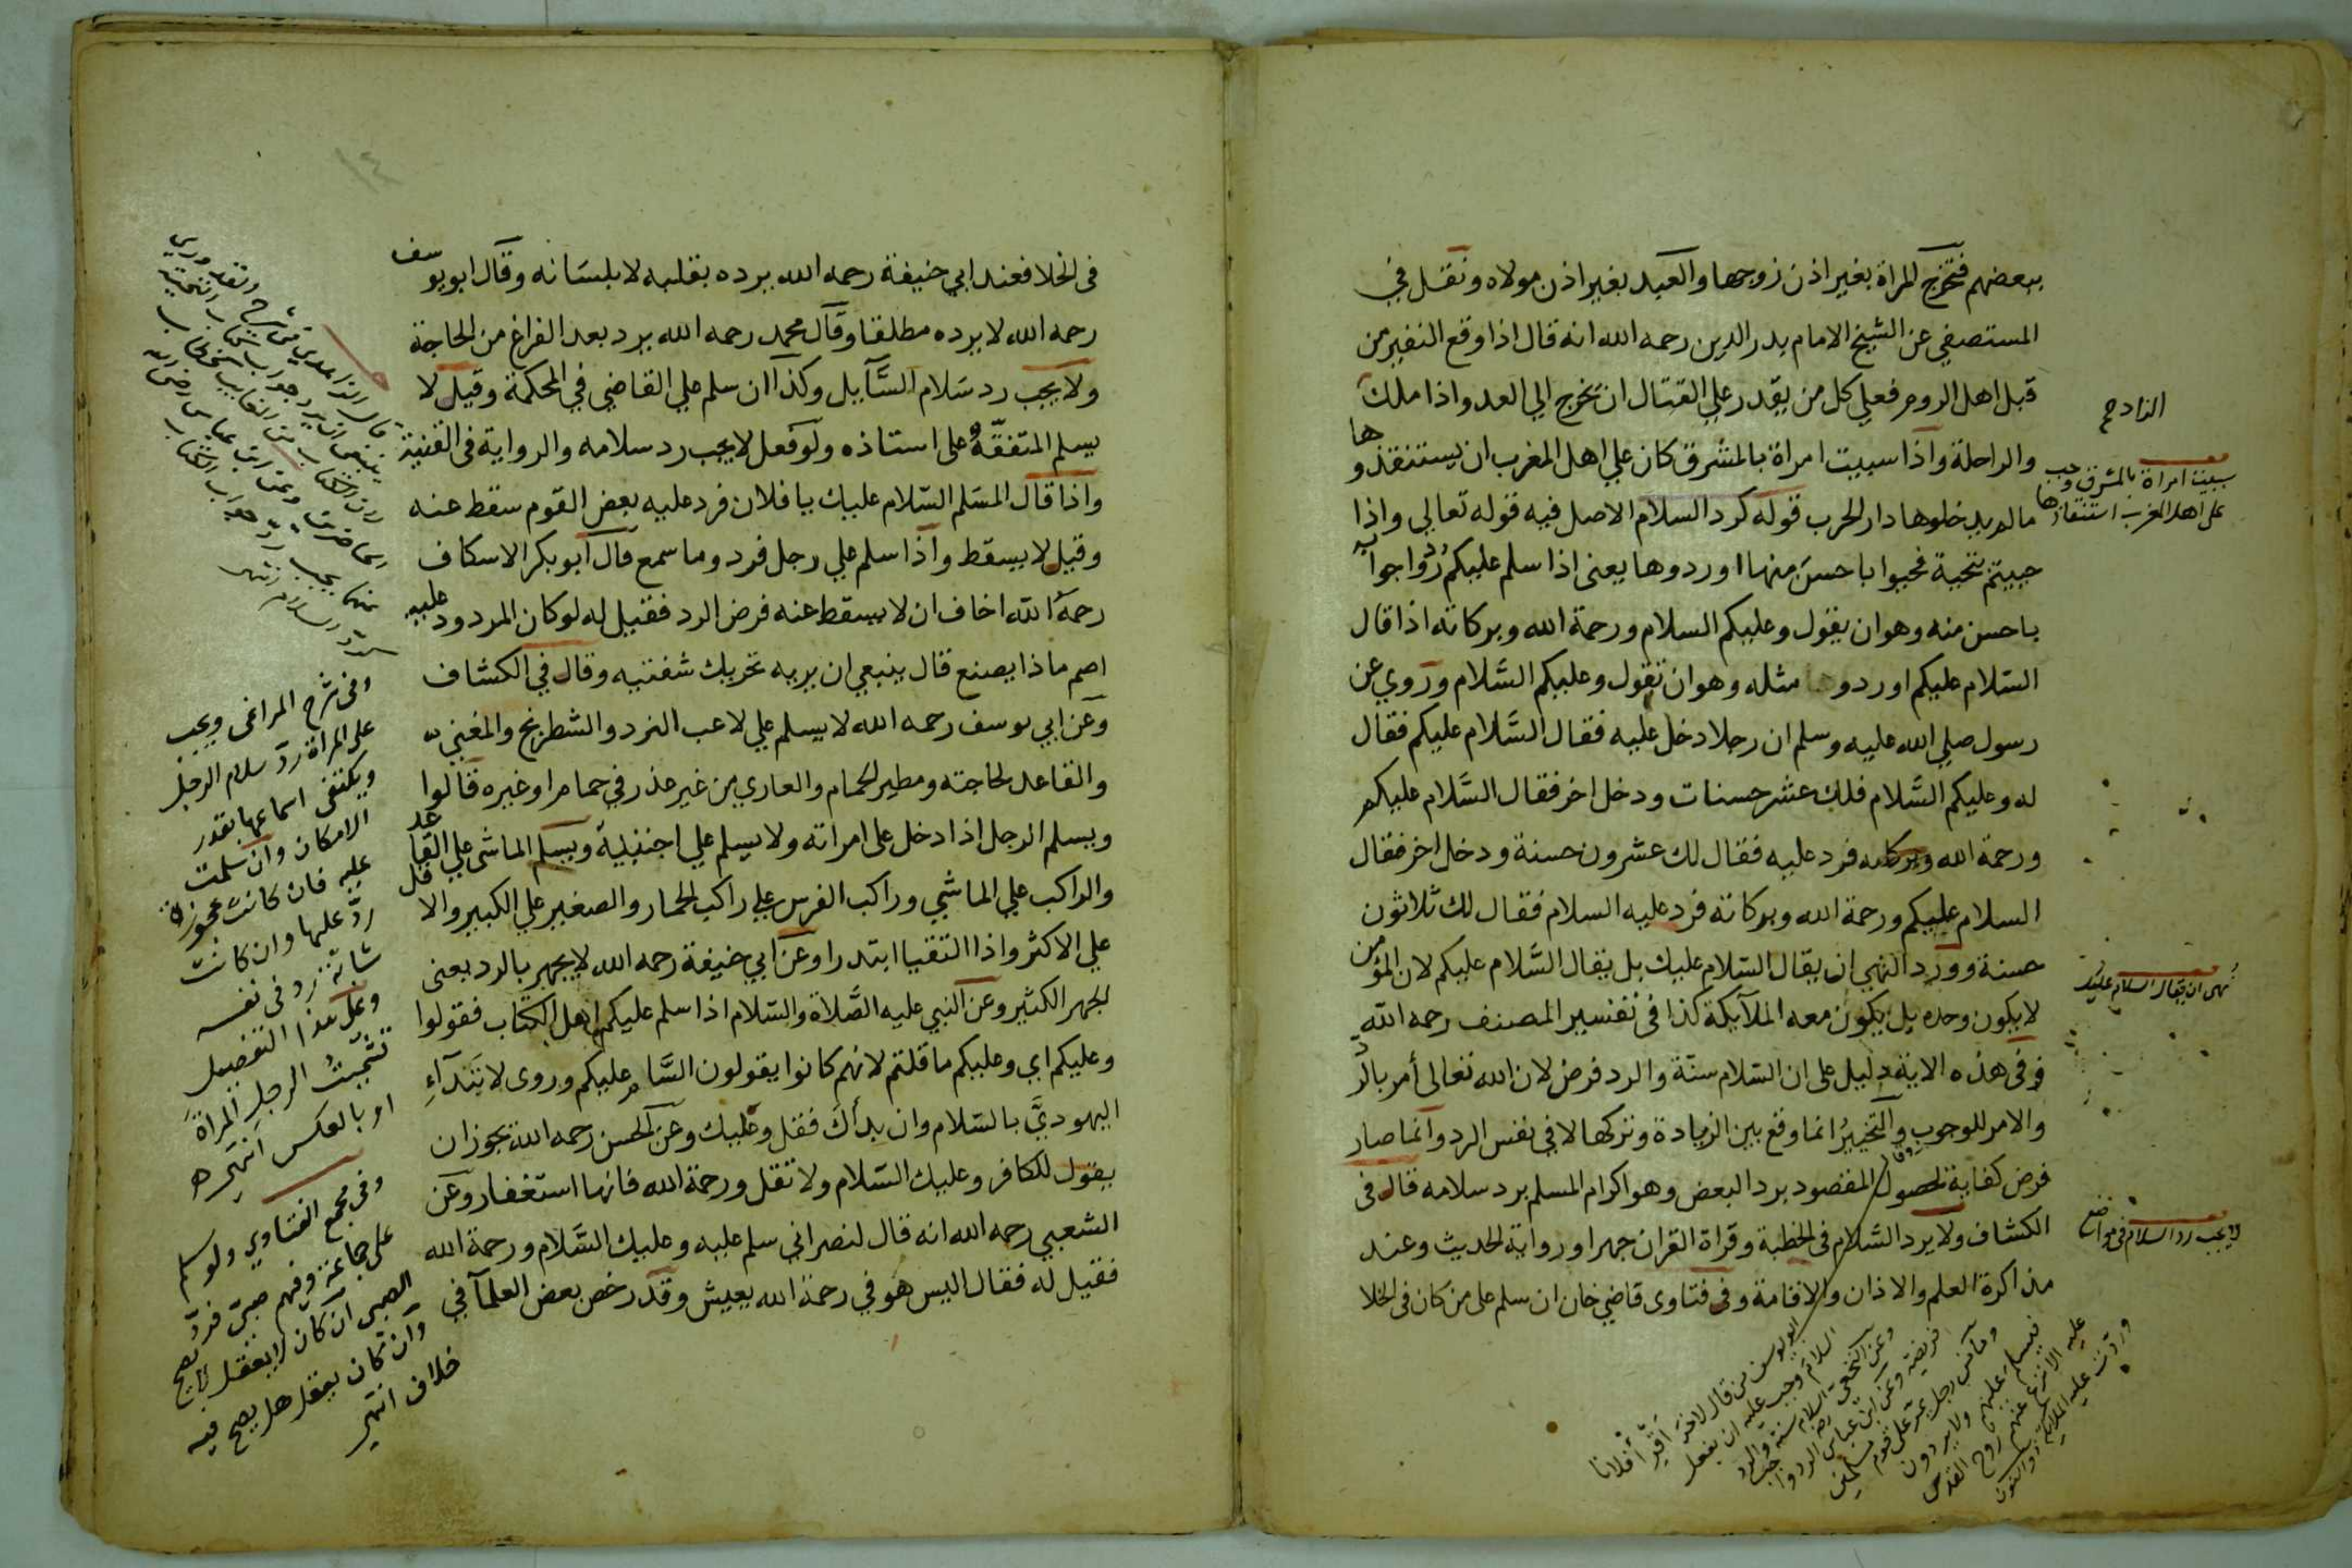 ببعضهم فتخرج المراة بغير اذن زوجها والعبد بغير اذن مولاه ونقل في
المستصفي عن الشيخ الامام بدر الدين رحمه الله انه قال اذا وقع النفير من
قبل اهل الروم فعلي كل من يقدر علي القتال ان يخرج الي العدو اذا ملك
الزاد صح
والراحلة واذا سبيت امراة بالمشرق كان علي اهل المغرب ان يستنقذوها
مالم يدخلوها دار الحرب قوله كرد السلام الاصل فيه قوله تعالي واذا
حييتم بتحية فحيوا باحسن منها او ردوها يعني اذا سلم عليكم ردوا جوابه
باحسن منه وهو ان يقول وعليكم السلام ورحمة الله وبركاته اذا قال
السلام عليكم او ردوها مثله وهو ان تقول وعليكم السَّلام وروي عن
رسول صلي الله عليه وسلم ان رجلا دخل عليه فقال السَّلام عليكم فقال
له وعليكم السَّلام فلك عشر حسنات ودخل اخر فقال السَّلام عليكم
ورحمة الله وبركاته فرد عليه فقال لك عشرون حسنة ودخل اخر فقال
السلام عليكم ورحمة الله وبركاته فرد عليه السلام فقال لك ثلاثون
حسنة وورد النهي ان يقال السلام عليك بل يقال السَّلام عليكم لان المؤمن
لا يكون وحده بل يكون معه الملآيكة كذا في تفسير المصنف رحمه الله
وفي هذه الاية دليل على ان السّلام سنّة والرد فرض لان الله تعالى أمر بالرد
والامر للوجوبِ والتخييرُ انما وقع بين الزيادة وتركها لا في نفس الرد وانما صار
فرض كفاية لحصول المقصود برد البعض وهو اكرام المسلم برد سلامه قال في
الكشاف ولا يرد السَّلام في الخطبة وقراة القران جهرا ورواية الحديث وعند
مذاكرة العلم والاذان والاقامة وفي فتاوى قاضي خان ان سلم على من كان في الخلا
سبيت امراة بالمشرق وجب
على اهل المغرب استنقاذها
نهى ان يقال السلام عليك
لا يجب رد السلام في مواضع
ابو يوسف من قال لاخر اقرِ أفلانا
السلام وجب عليه ان يفعل
وعن النخعي السلام سنة والرد
فريضة وعن ابن عباس رضه الرد واجب
وما من رجل يمر على قوم مسلمين
فيسلم عليهم ولا يردون
عليه الا نزع عنهم روح القدس
وردت عليه الملايكة
في الخلا فعند ابي حنيفة رحمه الله يرده بقلبه لا بلسَانه وقال ابو يوسف
رحمه الله لا يرده مطلقا وقال محمد رحمه الله يرد بعد الفراغ من الحاجة
ولا يجب رد سَلام السَّآيل وكذا ان سلم علي القاضي في المحكمة وقيل لا
يسلم المتفقّهُ على استاذه ولو فعل لا يجب رد سلامه والرواية في القنية
واذا قال المسَلم السّلام عليك يا فلان فرد عليه بعض القوم سقط عنه
وقيل لا يسقط واذا سلم علي رجل فرد وما سمع قال ابو بكر الاسكاف
رحمهُ الله اخاف ان لا يسقط عنه فرض الرد فقيل له لو كان المردود عليه
اصم ماذا يصنع قال ينبغي ان يريه تحريك شفتيه وقال في الكشاف
وعن ابي يوسف رحمه الله لا يسلم علي لاعب النرد والشطرنج والمغني
والقاعد لحاجته ومطير الحمام والعاري من غير عذر في حمام او غيره قالوا
ويسلم الرجل اذا دخل على امراته ولا يسلم علي اجنبية ويسلم الماشي علي القاعد
والراكب علي الماشي وراكب الفرس علي راكب الحمار والصغير علي الكبير والاقل
علي الاكثر واذا التقيا ابتدرا وعن ابي حنيفة رحمه الله لا يجهر بالرد يعني
الجهر الكثير وعن النبي عليه الصَّلاة والسّلام اذا سلم عليكم اهل الكتاب فقولوا
وعليكم اي وعليكم ما قلتم لانهم كانوا يقولون السَّام عليكم وروى لا يَبْتَدآءِ
اليهوديَّ بالسّلام وان بدأك فقل وعليك وعن الحسن رحمه الله يجوز ان
يقول للكافر وعليك السّلام ولا تقل ورحمة الله فانها استغفار وعن
الشعبي رحمه الله انه قال لنصراني سلم عليه وعليك السَّلام ورحمة الله
فقيل له فقال اليس هو في رحمة الله يعيش وقد رخص بعض العلمآ في
١٤
وفي شرح المراغي ويجب
على المراة ردّ سلام الرجل
ويكتفى اسماعها بقدر
الامكان وان سلمت
عليه فان كانت عجوزة
ردّ عليها وان كانت
شابّة ردّ في نفسه
وعلى هذا التفصيل
تشميتُ الرجلِ المراةَ
او بالعكس انتهى
وفي مجمع الفتاوي ولو سلم
على جماعة وفيهم صبيّ فردّ
الصبي ان كان لا يعقل لا يصح
وان كان يعقل هل يصح فيه
خلاف انتهى